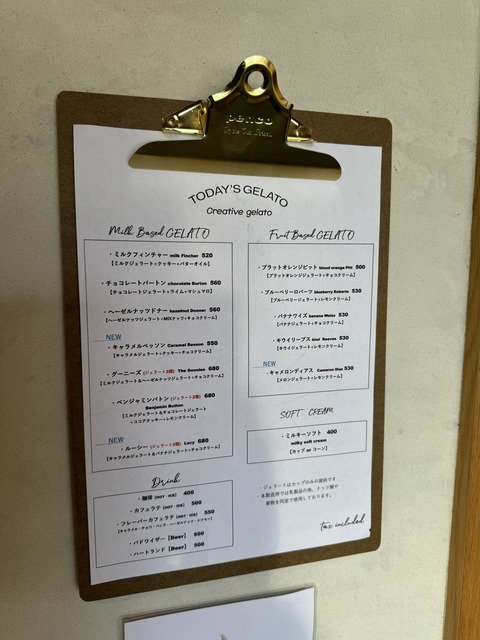 penco
TODAY'S GELATO
Creative gelato
Milk Based GELATO
・ミルクフィンチャー milk Fincher 520
【ミルクジェラート+クッキー+バターオイル】
・チョコレートバートン chocolate Burton 560
【チョコレートジェラート+ライム+マシュマロ】
・ヘーゼルナッツドナー hazelnut Donner 560
【ヘーゼルナッツジェラート+MIXナッツ+チョコクリーム】
NEW
・キャラメルベッソン Caramel Besson 550
【キャラメルジェラート+クッキー+チョコクリーム】
・グーニーズ (ジェラート2種) The Goonies 680
【ミルクジェラート&ヘーゼルナッツジェラート+チョコクリーム】
・ベンジャミンバトン (ジェラート2種) 680
Benjamin Button
【ミルクジェラート&チョコレートジェラート
+ココアクッキー+レモンクリーム】
NEW
・ルーシー (ジェラート2種) Lucy 680
【キャラメルジェラート&バナナジェラート+チョコクリーム】
Drink
・珈琲 [HOT・ICE] 400
・カフェラテ [HOT・ICE] 500
・フレーバーカフェラテ [HOT・ICE] 550
・バドワイザー【Beer】 500
・ハートランド【Beer】 500
Fruit Based GELATO
・ブラットオレンジピット blood orange Pitt 500
【ブラットオレンジジェラート+チョコクリーム】
・ブルーベリーロバーツ blueberry Roberts 530
【ブルーベリージェラート+レモンクリーム】
・バナナワイズ banana Weisz 530
【バナナジェラート+チョコクリーム】
・キウイリーブス kiwi Reeves 530
【キウイジェラート+レモンクリーム】
NEW
・キャメロンディアス Cameron Dias 530
【メロンジェラート+レモンクリーム】
SOFT CREAM
・ミルキーソフト 400
milky soft cream
【カップ or コーン】
・ジェラートはカップのみの提供です
・本製造所では乳製品の他、ナッツ類や
果物を同室で使用しております。
tax included